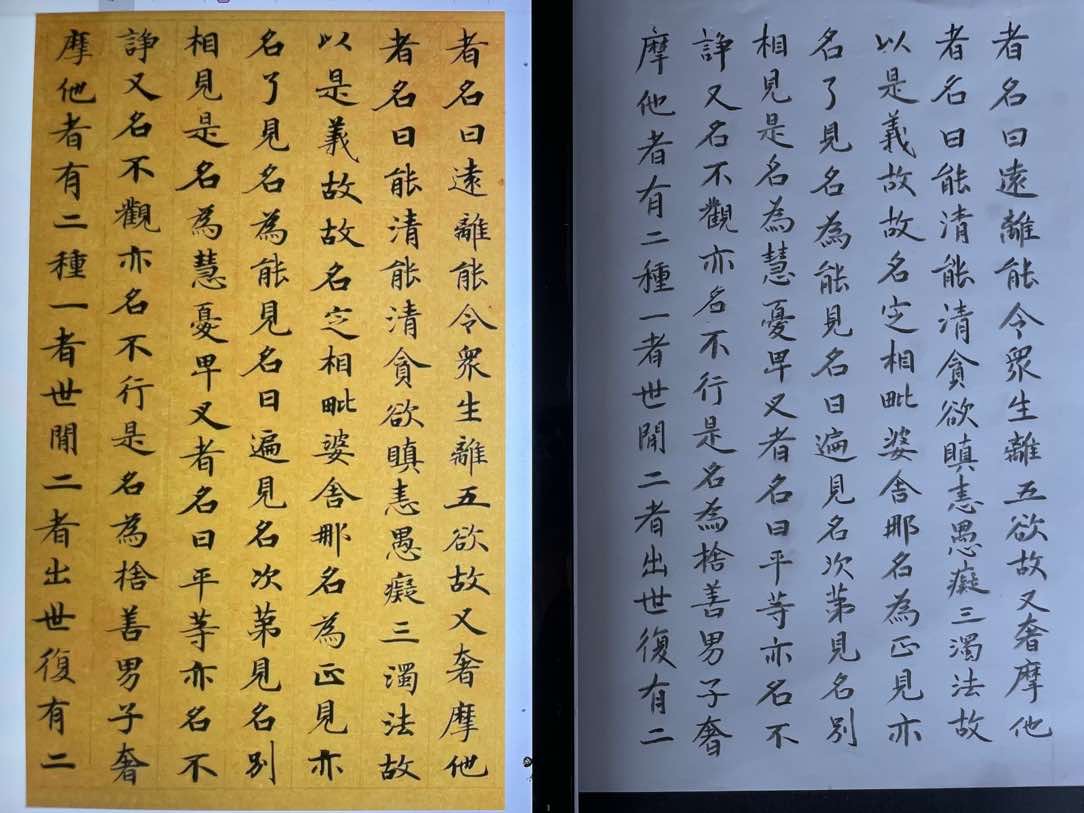 者名曰遠離能令眾生離五欲故又奢摩他
者名曰能清能清貪欲瞋恚愚癡三濁法故
以是義故故名定相毗婆舍那名為正見亦
名了見名為能見名曰遍見名次第見名別
相見是名為慧憂畢叉者名曰平等亦名不
諍又名不觀亦名不行是名為捨善男子奢
摩他者有二種一者世間二者出世復有二
者名曰遠離能令眾生離五欲故又奢摩他
者名曰能清能清貪欲瞋恚愚癡三濁法故
以是義故故名定相毗婆舍那名為正見亦
名了見名為能見名曰遍見名次第見名別
相見是名為慧憂畢叉者名曰平等亦名不
諍又名不觀亦名不行是名為捨善男子奢
摩他者有二種一者世間二者出世復有二